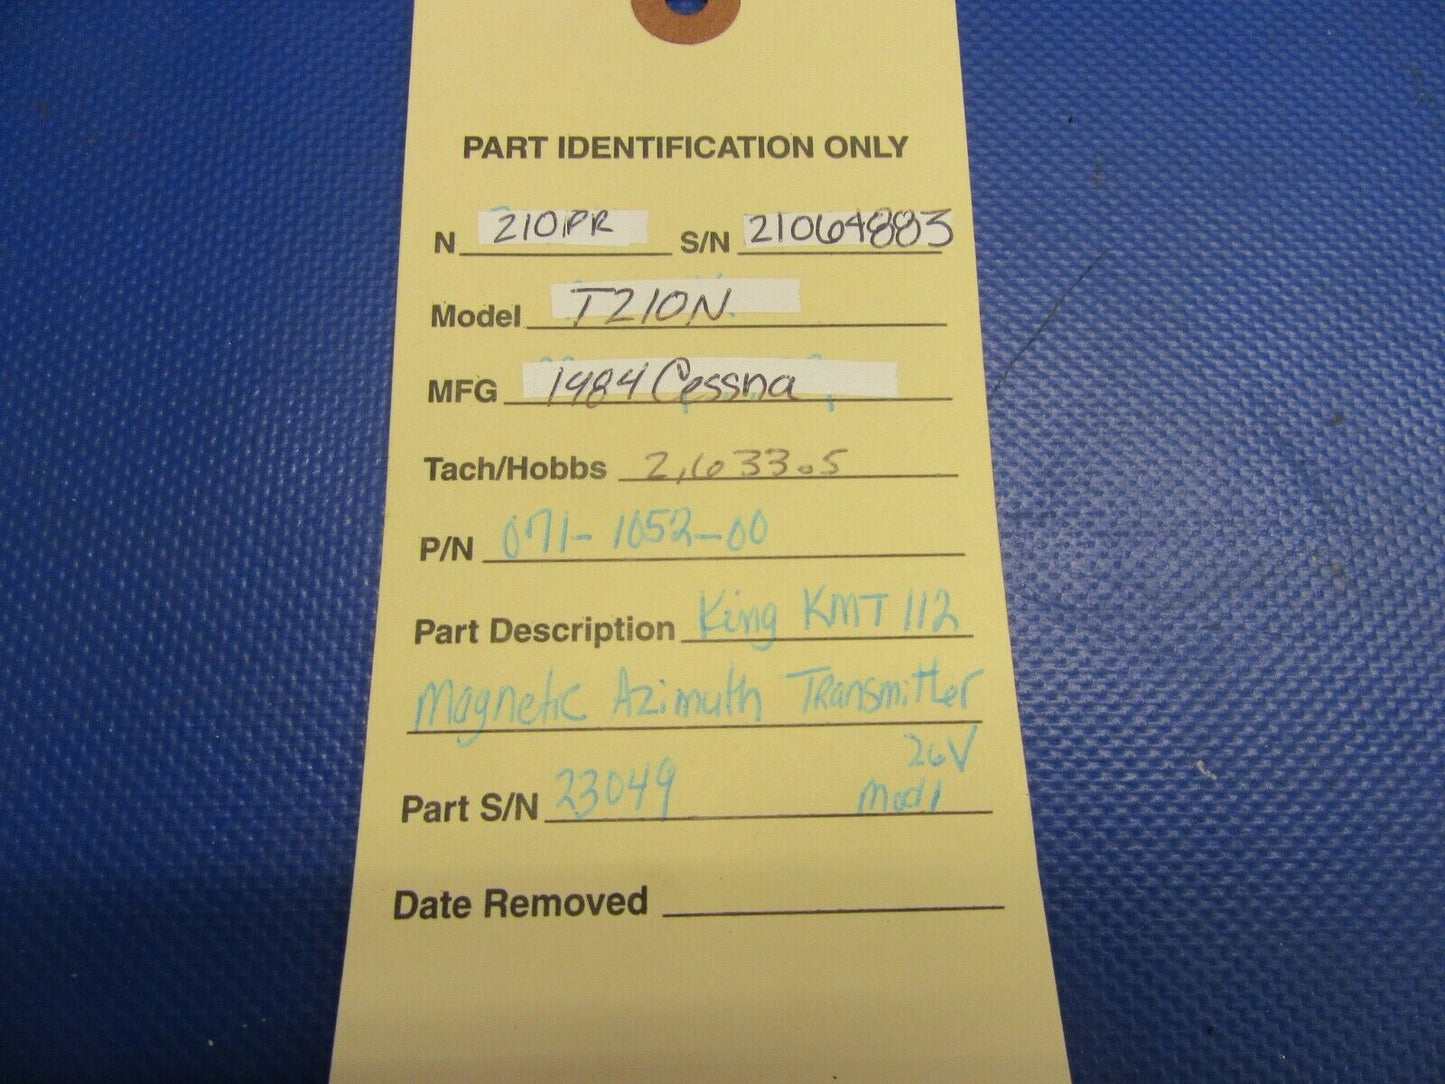 PART IDENTIFICATION ONLY
N 210PR S/N 21064883
Model T210N
MFG 1984 Cessna
Tach/Hobbs 2,633.5
P/N 071-1052-00
Part Description King KMT 112
Magnetic Azimuth Transmitter
26V
Part S/N 23049 Mod 1
Date Removed